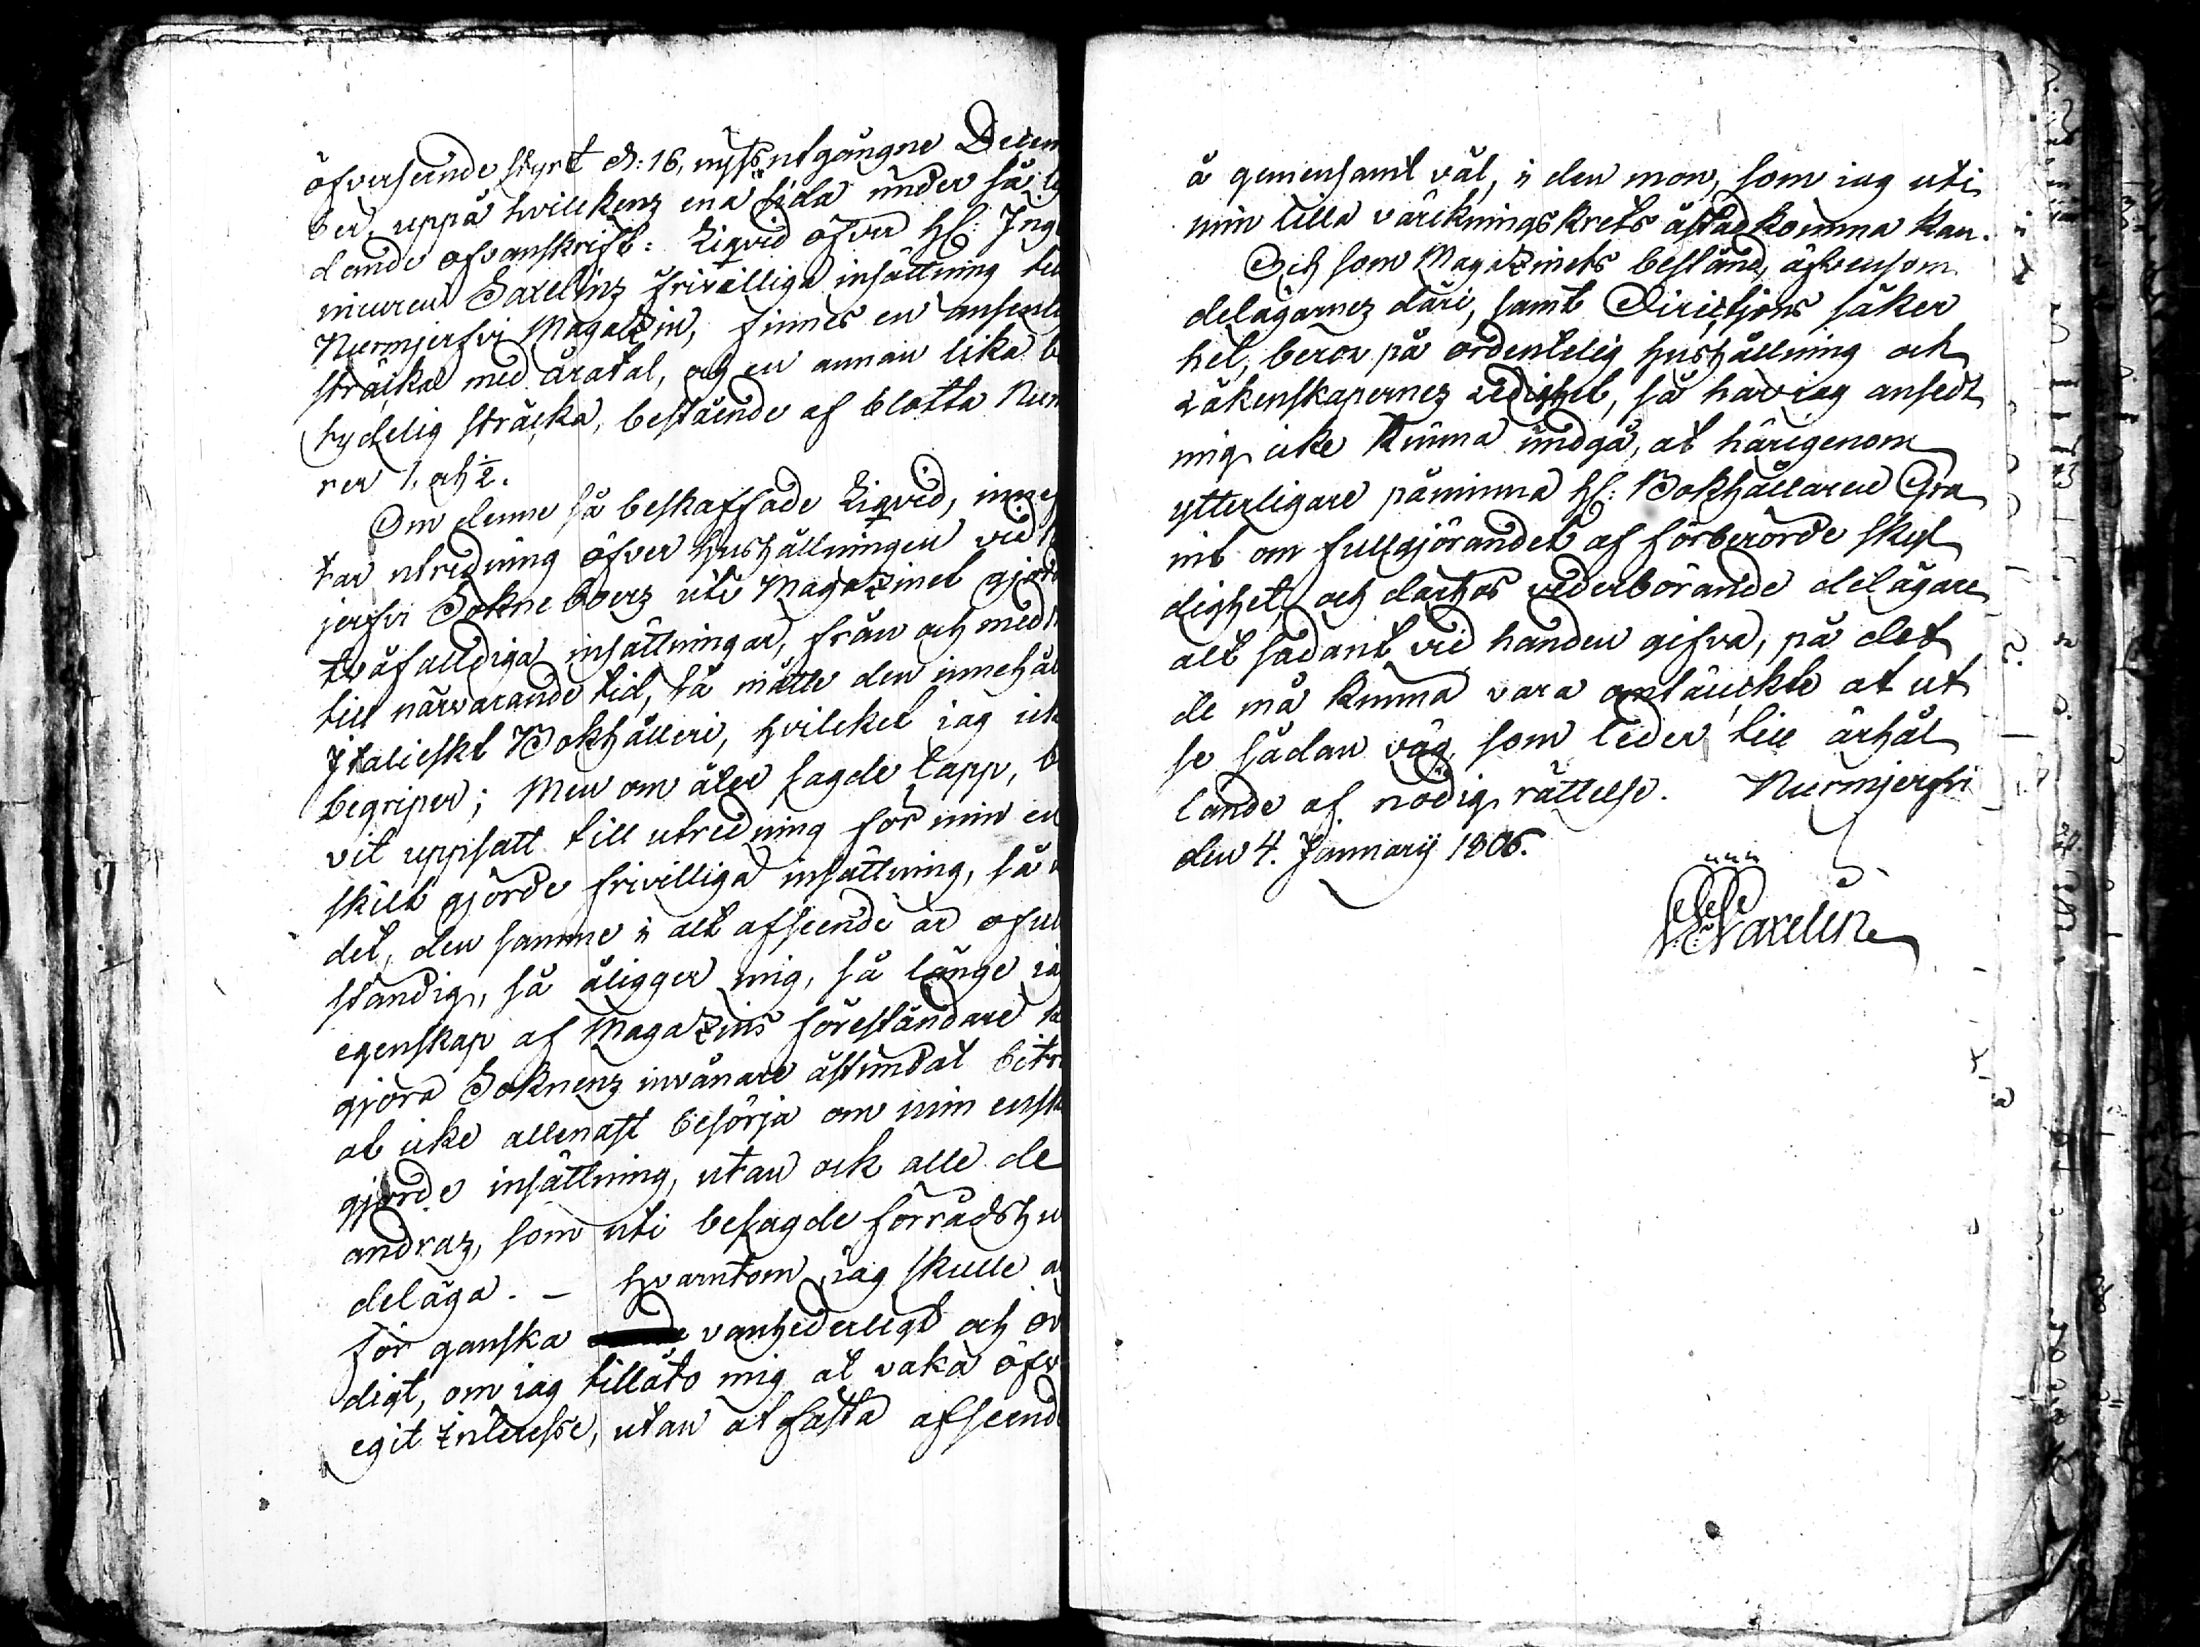 öfverseende styrt d: 16, nyss utgångne Decem
ber, uppå hvilckens ena sida under så ly
dande ofvanskrift: Liqvid öfver H: Inge
nieuren Saxelins friwilliga insättning uti
Nurmjerfvi Magatzin, finnes en ansenlig
sträcka med åratal, och en annan lika be
tydelig sträcka, bestående af blotta Num
rer 1. och ½.
Om denne så beskaffade Liqvid, innef
tar utredning öfver hushållningen vid
jerfvi Sokneboers uti Magazinet gjorde
tväfalldiga insättningar, från och med
till närvarande tid, så måtte den innehål
Italieskt Bokhålleri, hvilcket iag ick
begriper; Men om åter sagde lapp, b
vit uppsatt till utredning för min en
skilt gjorde frivilliga insättning, så
det, den samme i alt afseende är oful
ständig, så åligger mig, så länge iag
egenskap af Magazins föreståndare
gjöra Soknens invånare åstundat bitr
at icke allenast besörja om min ensk
gjorde insättning, utan ock alle de
andras, som uti besagde förrådshu
deläga. – hvarutom iag skulle a
för ganska vanhederligt och ov
digt, om iag tilläto mig at vaka öfv
egit Interesse, utan at fästa afseend
å gemensamt väl, i den mon, som iag uti
min lilla värckningskrets åstadkomma kan.
Och som Magazinets bestånd, äfvensom
delägarnes däri, samt Dirictjons säker
het, beror på ordentelig hushållning och
räkenskapernes redighet, så har iag ansedt
mig icke kunna undgå, at härigenom
ytterligare påminna H: Bokhållaren Gra
nit om fullgjörandet af förberörde skyl
dighet, och därhos vederbörande delägare
alt sådant vid handen gifva, på det
de må kunna vara omtänckte at ut
se sådan väg, som leder till ärhål
lande af nödig rättelse. Nurmjerfvi
den 4. Januarij 1806.
Saxelin